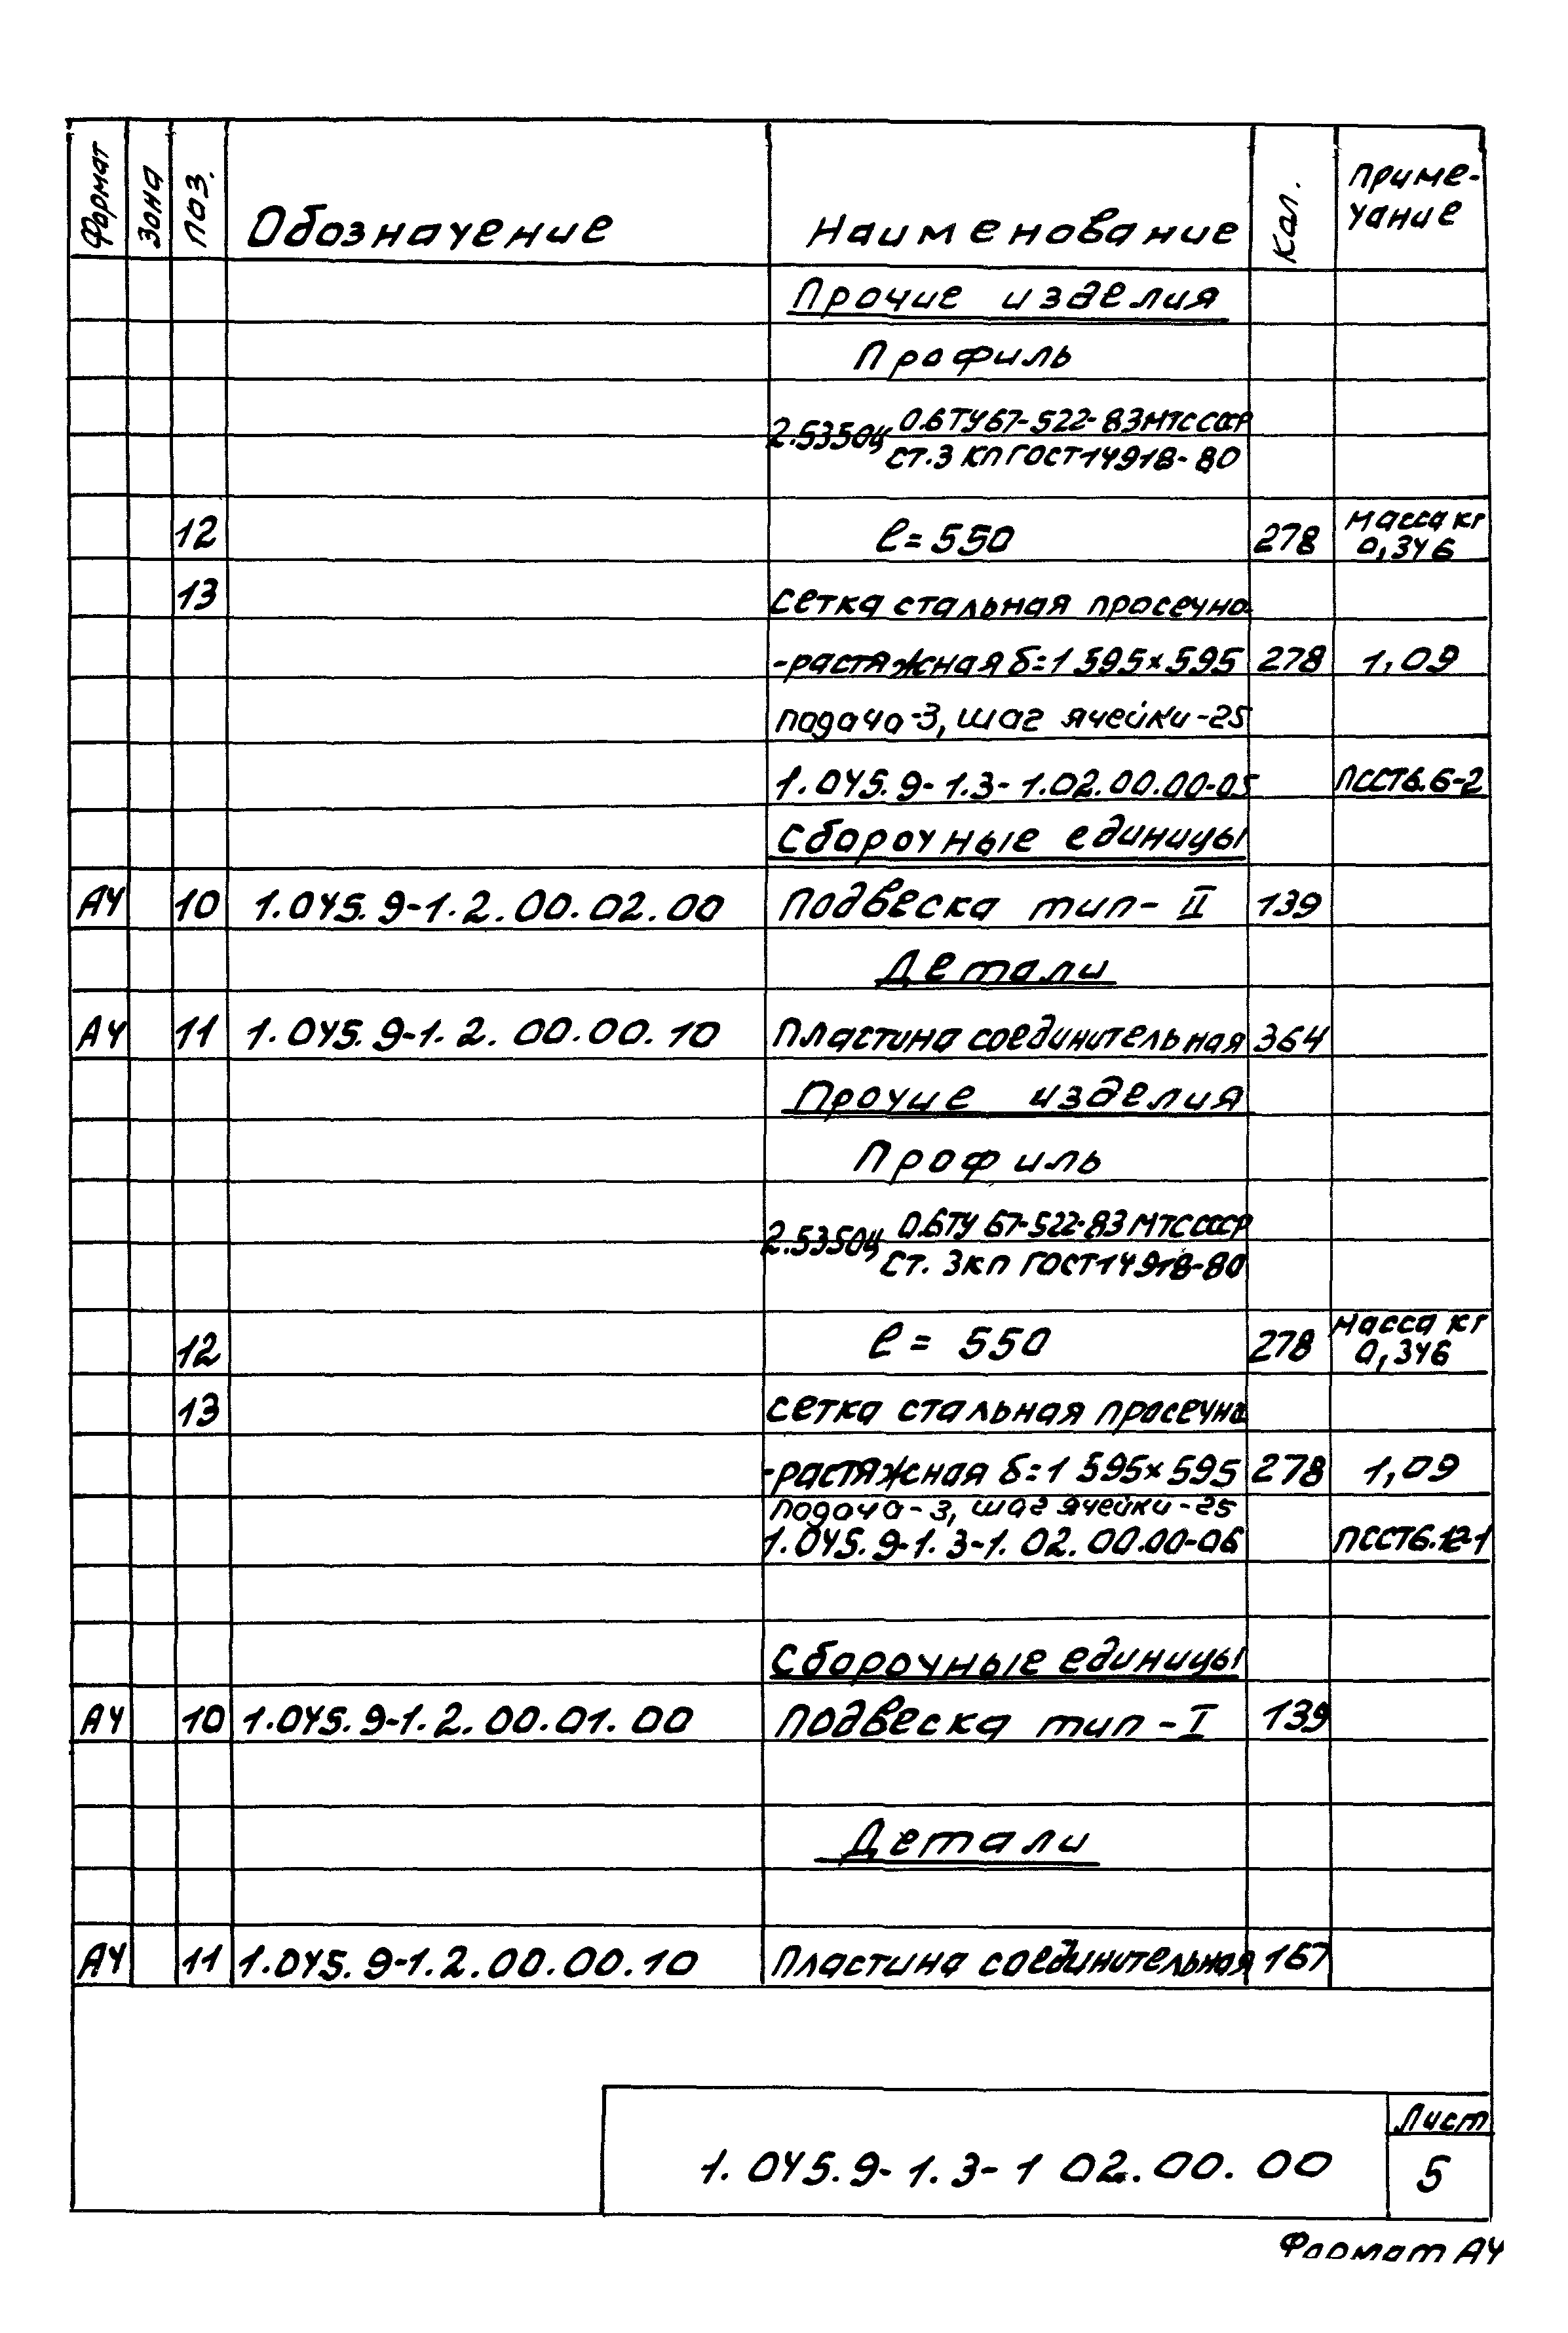 Формат Зона Поз. Обозначение Наименование Кол. Приме-
чание
Прочие изделия
Профиль
2.53504 0.6ТУ67-522-83МТСССР
ст.3 кп ГОСТ14918-80
12 ℓ=550 278 Масса кг
0,346
13 сетка стальная просечно
-растяжная δ=1 595×595 278 1,09
подача-3, шаг ячейки-25
1.045.9-1.3-1.02.00.00-05 ПССТ6.6-2
Сборочные единицы
А4 10 1.045.9-1.2.00.02.00 Подвеска тип-II 139
Детали
А4 11 1.045.9-1.2.00.00.10 Пластина соединительная 364
Прочие изделия
Профиль
2.53504 0.6ТУ 67-522-83 МТСССР
Ст. 3кп ГОСТ14918-80
12 ℓ= 550 278 Масса кг
0,346
13 сетка стальная просечно
-растяжная δ=1 595×595 278 1,09
подача-3, шаг ячейки-25
1.045.9-1.3-1.02.00.00-06 ПССТ6.12-1
Сборочные единицы
А4 10 1.045.9-1.2.00.01.00 Подвеска тип-I 139
Детали
А4 11 1.045.9-1.2.00.00.10 Пластина соединительная 167
1.045.9-1.3-1 02.00.00 Лист
5
Формат А4